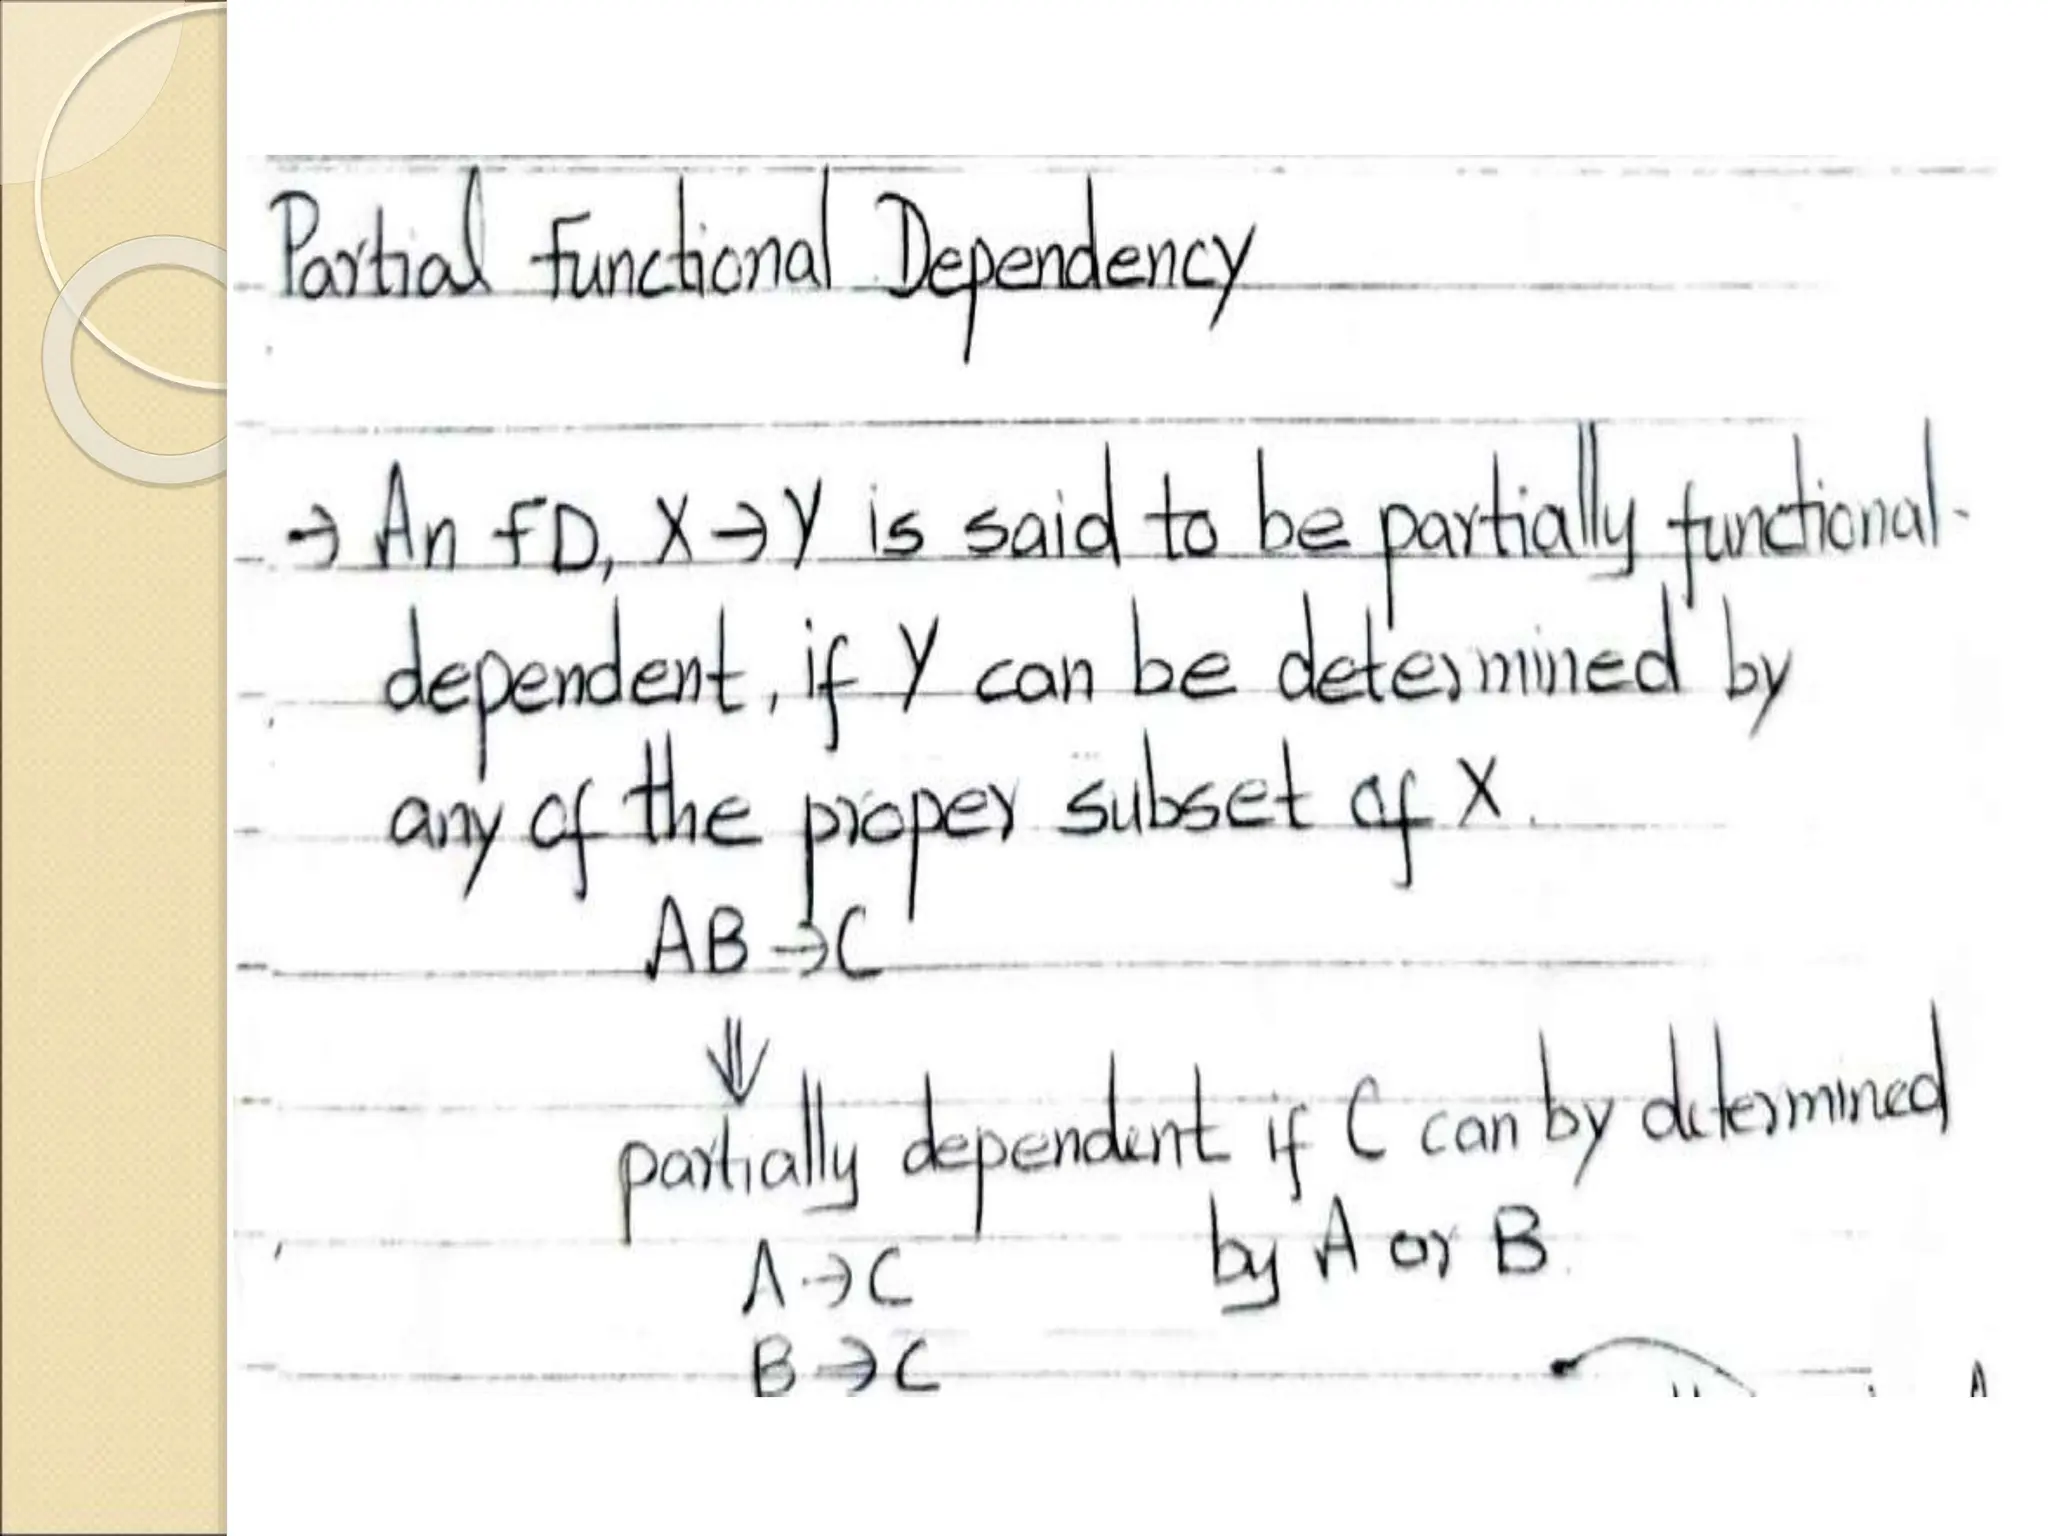 Partial Functional Dependency
→ An FD, X→Y is said to be partially functional-
dependent, if Y can be determined by
any of the proper subset of X.
AB→C
⇓
partially dependent if C can by determined
by A or B.
A→C
B→C